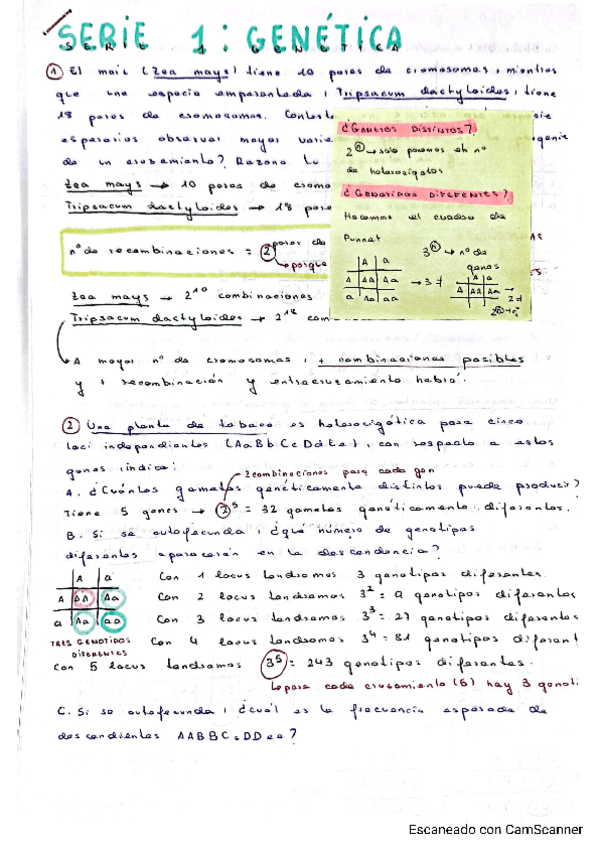 SERIE 1: GENÉTICA
SERIE 1: GENÉTICA
① El maíz (Zea mays) tiene 10 pares de cromosomas, mientras
que una especie emparentada, Tripsacum dactyloides, tiene
18 pares de cromosomas.
esperarías observar mayor
de un cruzamiento? Razona tu
Zea mays → 10 pares de cromo
Tripsacum dactyloides → 18 pare
nº de recombinaciones = 2 pares de
↳ porque
Zea mays → 2¹⁰ combinaciones
Tripsacum dactyloides → 2¹⁸ com
A mayor nº de cromosomas, + combinaciones posibles
y + recombinación y entrecruzamiento habrá.
¿GAMETOS DISTINTOS?
2ⁿ → solo ponemos el nº
de heterocigotos
¿GENOTIPOS DIFERENTES?
Hacemos el cuadro de
Punnet
3ⁿ → nº de
genes
A a
A AA Aa → 3 ≠
a Aa aa
A a
A AA Aa →
2 ≠
② Una planta de tabaco es heterocigótica para cinco
loci independientes (AaBbCcDdEe), con respecto a estos
genes indica:
2 combinaciones para cada gen
A. ¿Cuántos gametos genéticamente distintos puede producir?
Tiene 5 genes → 2⁵ = 32 gametos genéticamente diferentes.
B. Si se autofecunda, ¿qué número de genotipos
diferentes aparecerán en la descendencia?
A a
A AA Aa
a Aa aa
TRES GENOTIPOS
DIFERENTES
Con 1 locus tendremos 3 genotipos diferentes.
Con 2 locus tendremos 3² = 9 genotipos diferentes
Con 3 locus tendremos 3³ = 27 genotipos diferentes
Con 4 locus tendremos 3⁴ = 81 genotipos diferent
Con 5 locus tendremos 3⁵ = 243 genotipos diferentes.
↳ para cada cruzamiento (5) hay 3 genoti
C. Si se autofecunda, ¿cuál es la frecuencia esperada de
descendientes AABBCcDDee?
Escaneado con CamScanner